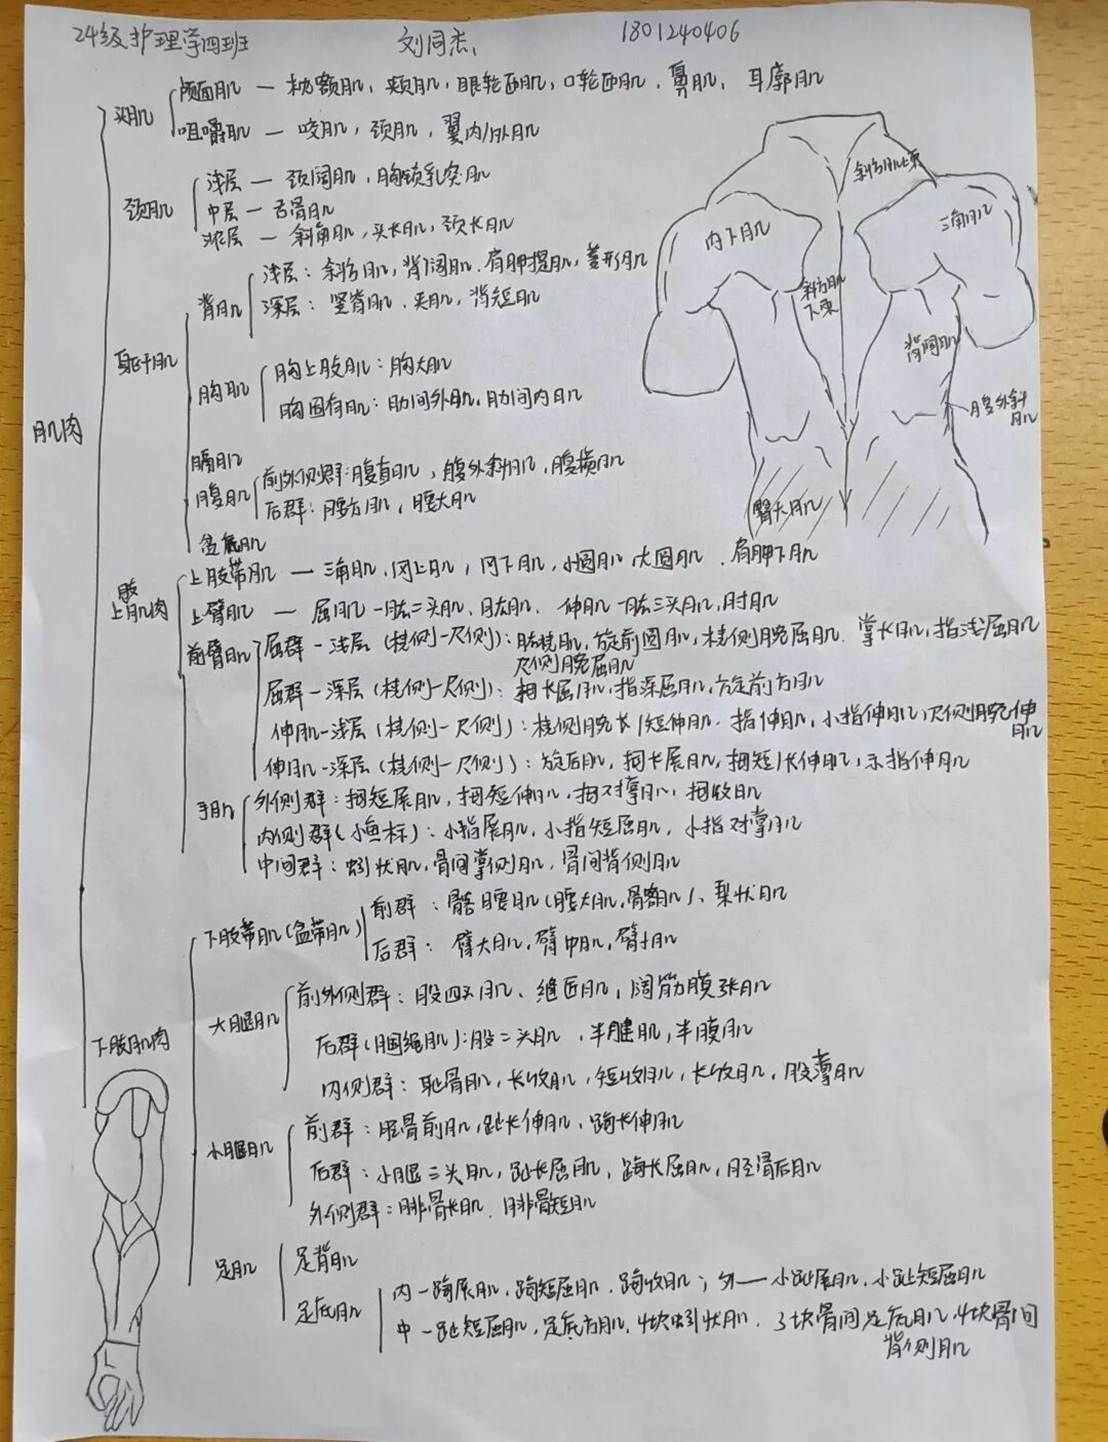 24级护理学四班 刘同杰 1801240406
肌肉
头肌
颅面肌 — 枕额肌, 颊肌, 眼轮匝肌, 口轮匝肌, 鼻肌, 耳廓肌
咀嚼肌 — 咬肌, 颈肌, 翼内/外肌
颈肌
浅层 — 颈阔肌, 胸锁乳突肌
中层 — 舌骨肌
深层 — 斜角肌, 头长肌, 颈长肌
躯干肌
背肌
浅层: 斜方肌, 背阔肌, 肩胛提肌, 菱形肌
深层: 竖脊肌, 夹肌, 背短肌
胸肌
胸上肢肌: 胸大肌
胸固有肌: 肋间外肌, 肋间内肌
膈肌
腹肌
前外侧群: 腹直肌, 腹外斜肌, 腹横肌
后群: 腰方肌, 腰大肌
盆底肌
上肢肌肉
上肢带肌 — 三角肌, 冈上肌, 冈下肌, 小圆肌, 大圆肌, 肩胛下肌
上臂肌 — 屈肌 — 肱二头肌, 肱肌, 伸肌 — 肱三头肌, 肘肌
前臂肌
屈群 — 浅层 (桡侧 — 尺侧): 肱桡肌, 旋前圆肌, 桡侧腕屈肌, 掌长肌, 指浅屈肌
尺侧腕屈肌
屈群 — 深层 (桡侧 — 尺侧): 拇长屈肌, 指深屈肌, 旋前方肌
伸肌 — 浅层 (桡侧 — 尺侧): 桡侧腕长/短伸肌, 指伸肌, 小指伸肌, 尺侧腕伸
肌
伸肌 — 深层 (桡侧 — 尺侧): 旋后肌, 拇长展肌, 拇短/长伸肌, 示指伸肌
手肌
外侧群: 拇短展肌, 拇短伸肌, 拇对掌肌, 拇收肌
内侧群 (小鱼标): 小指展肌, 小指短屈肌, 小指对掌肌
中间群: 蚓状肌, 骨间掌侧肌, 骨间背侧肌
下肢肌肉
下肢带肌 (盆带肌)
前群: 髂腰肌 (腰大肌, 骨髂肌), 梨状肌
后群: 臀大肌, 臀中肌, 臀小肌
大腿肌
前外侧群: 股四头肌, 缝匠肌, 阔筋膜张肌
后群 (腘绳肌): 股二头肌, 半腱肌, 半膜肌
内侧群: 耻骨肌, 长收肌, 短收肌, 长收肌, 股薄肌
小腿肌
前群: 胫骨前肌, 趾长伸肌, 踇长伸肌
后群: 小腿三头肌, 趾长屈肌, 踇长屈肌, 胫骨后肌
外侧群: 腓骨长肌, 腓骨短肌
足肌
足背肌
足底肌
内 — 踇展肌, 踇短屈肌, 踇收肌; 外 — 小趾展肌, 小趾短屈肌
中 — 趾短屈肌, 足底方肌, 4块蚓状肌, 3块骨间足底肌, 4块骨间
背侧肌
斜方肌上束
三角肌
内下肌
斜方肌
下束
背阔肌
腹外斜
肌
臀大肌